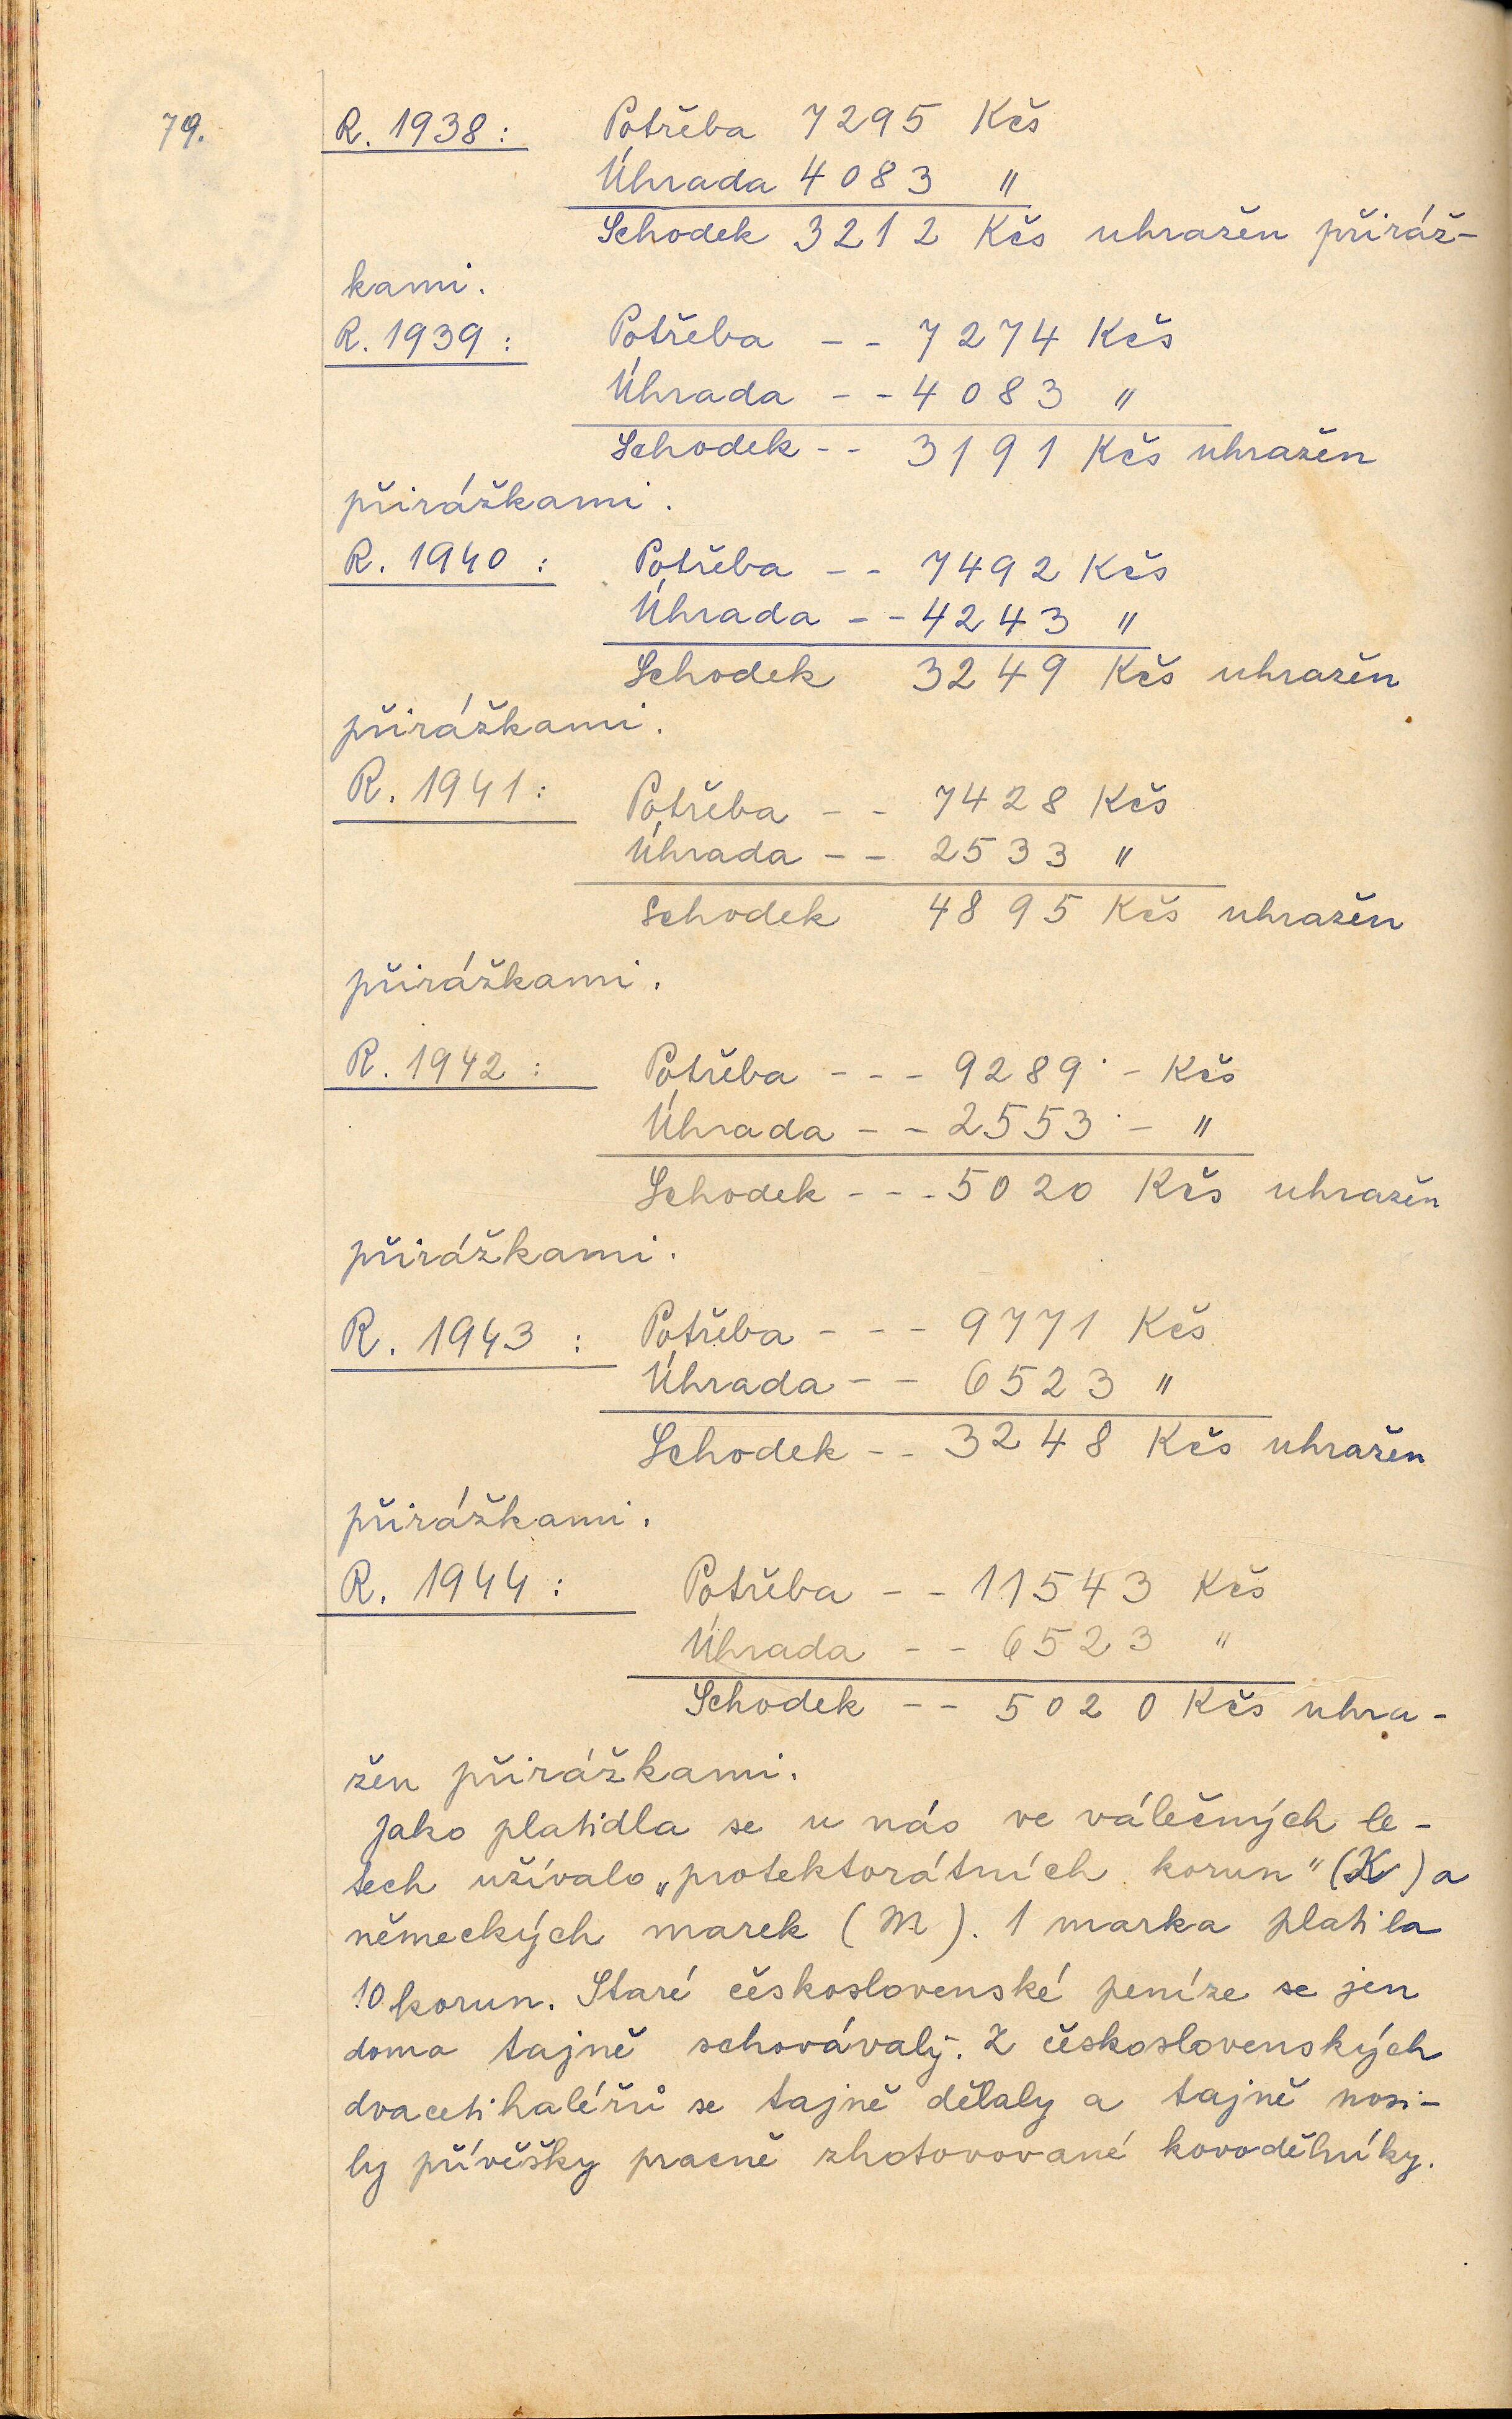 79.
R. 1938: Potřeba 7295 Kčs
Úhrada 4083 "
Schodek 3212 Kčs uhražen přiráž-
kami.
R. 1939: Potřeba -- 7274 Kčs
Úhrada -- 4083 "
Schodek -- 3191 Kčs uhražen
přirážkami.
R. 1940: Potřeba -- 7492 Kčs
Úhrada -- 4243 "
Schodek 3249 Kčs uhražen
přirážkami.
R. 1941: Potřeba -- 7428 Kčs
Úhrada -- 2533 "
Schodek 4895 Kčs uhražen
přirážkami.
R. 1942: Potřeba --- 9289·- Kčs
Úhrada -- 2553·- "
Schodek --- 5020 Kčs uhražen
přirážkami.
R. 1943: Potřeba --- 9771 Kčs
Úhrada -- 6523 "
Schodek -- 3248 Kčs uhražen
přirážkami.
R. 1944: Potřeba -- 11543 Kčs
Úhrada -- 6523 "
Schodek -- 5020 Kčs uhra-
žen přirážkami.
Jako platidla se u nás ve válečných le-
tech užívalo „protektorátních korun" (K) a
německých marek (M). 1 marka platila
10 korun. Staré československé peníze se jen
doma tajně schovávaly. Z československých
dvacetihaléřů se tajně dělaly a tajně nosi-
ly přívěšky pracně zhotovované kovodělníky.